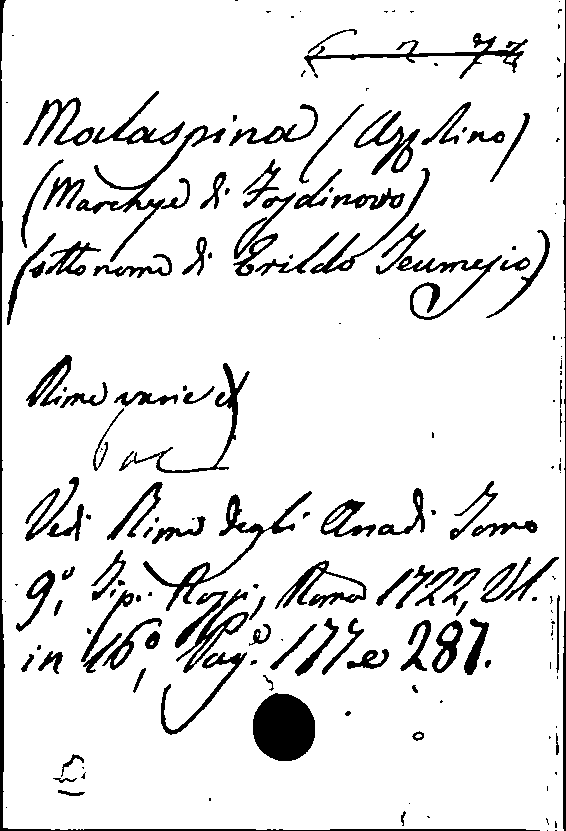 6. 2. 72
Malaspina (Azzolino)
(Marchese di Fosdinovo)
(sotto nome di Erildo Teumesio)
Rime varie
Vedi Rime degli Arcadi Tomo
9°, Tip. Rossi, Roma 1722, Vol.
in 16°, Pag.e 177 e 287.